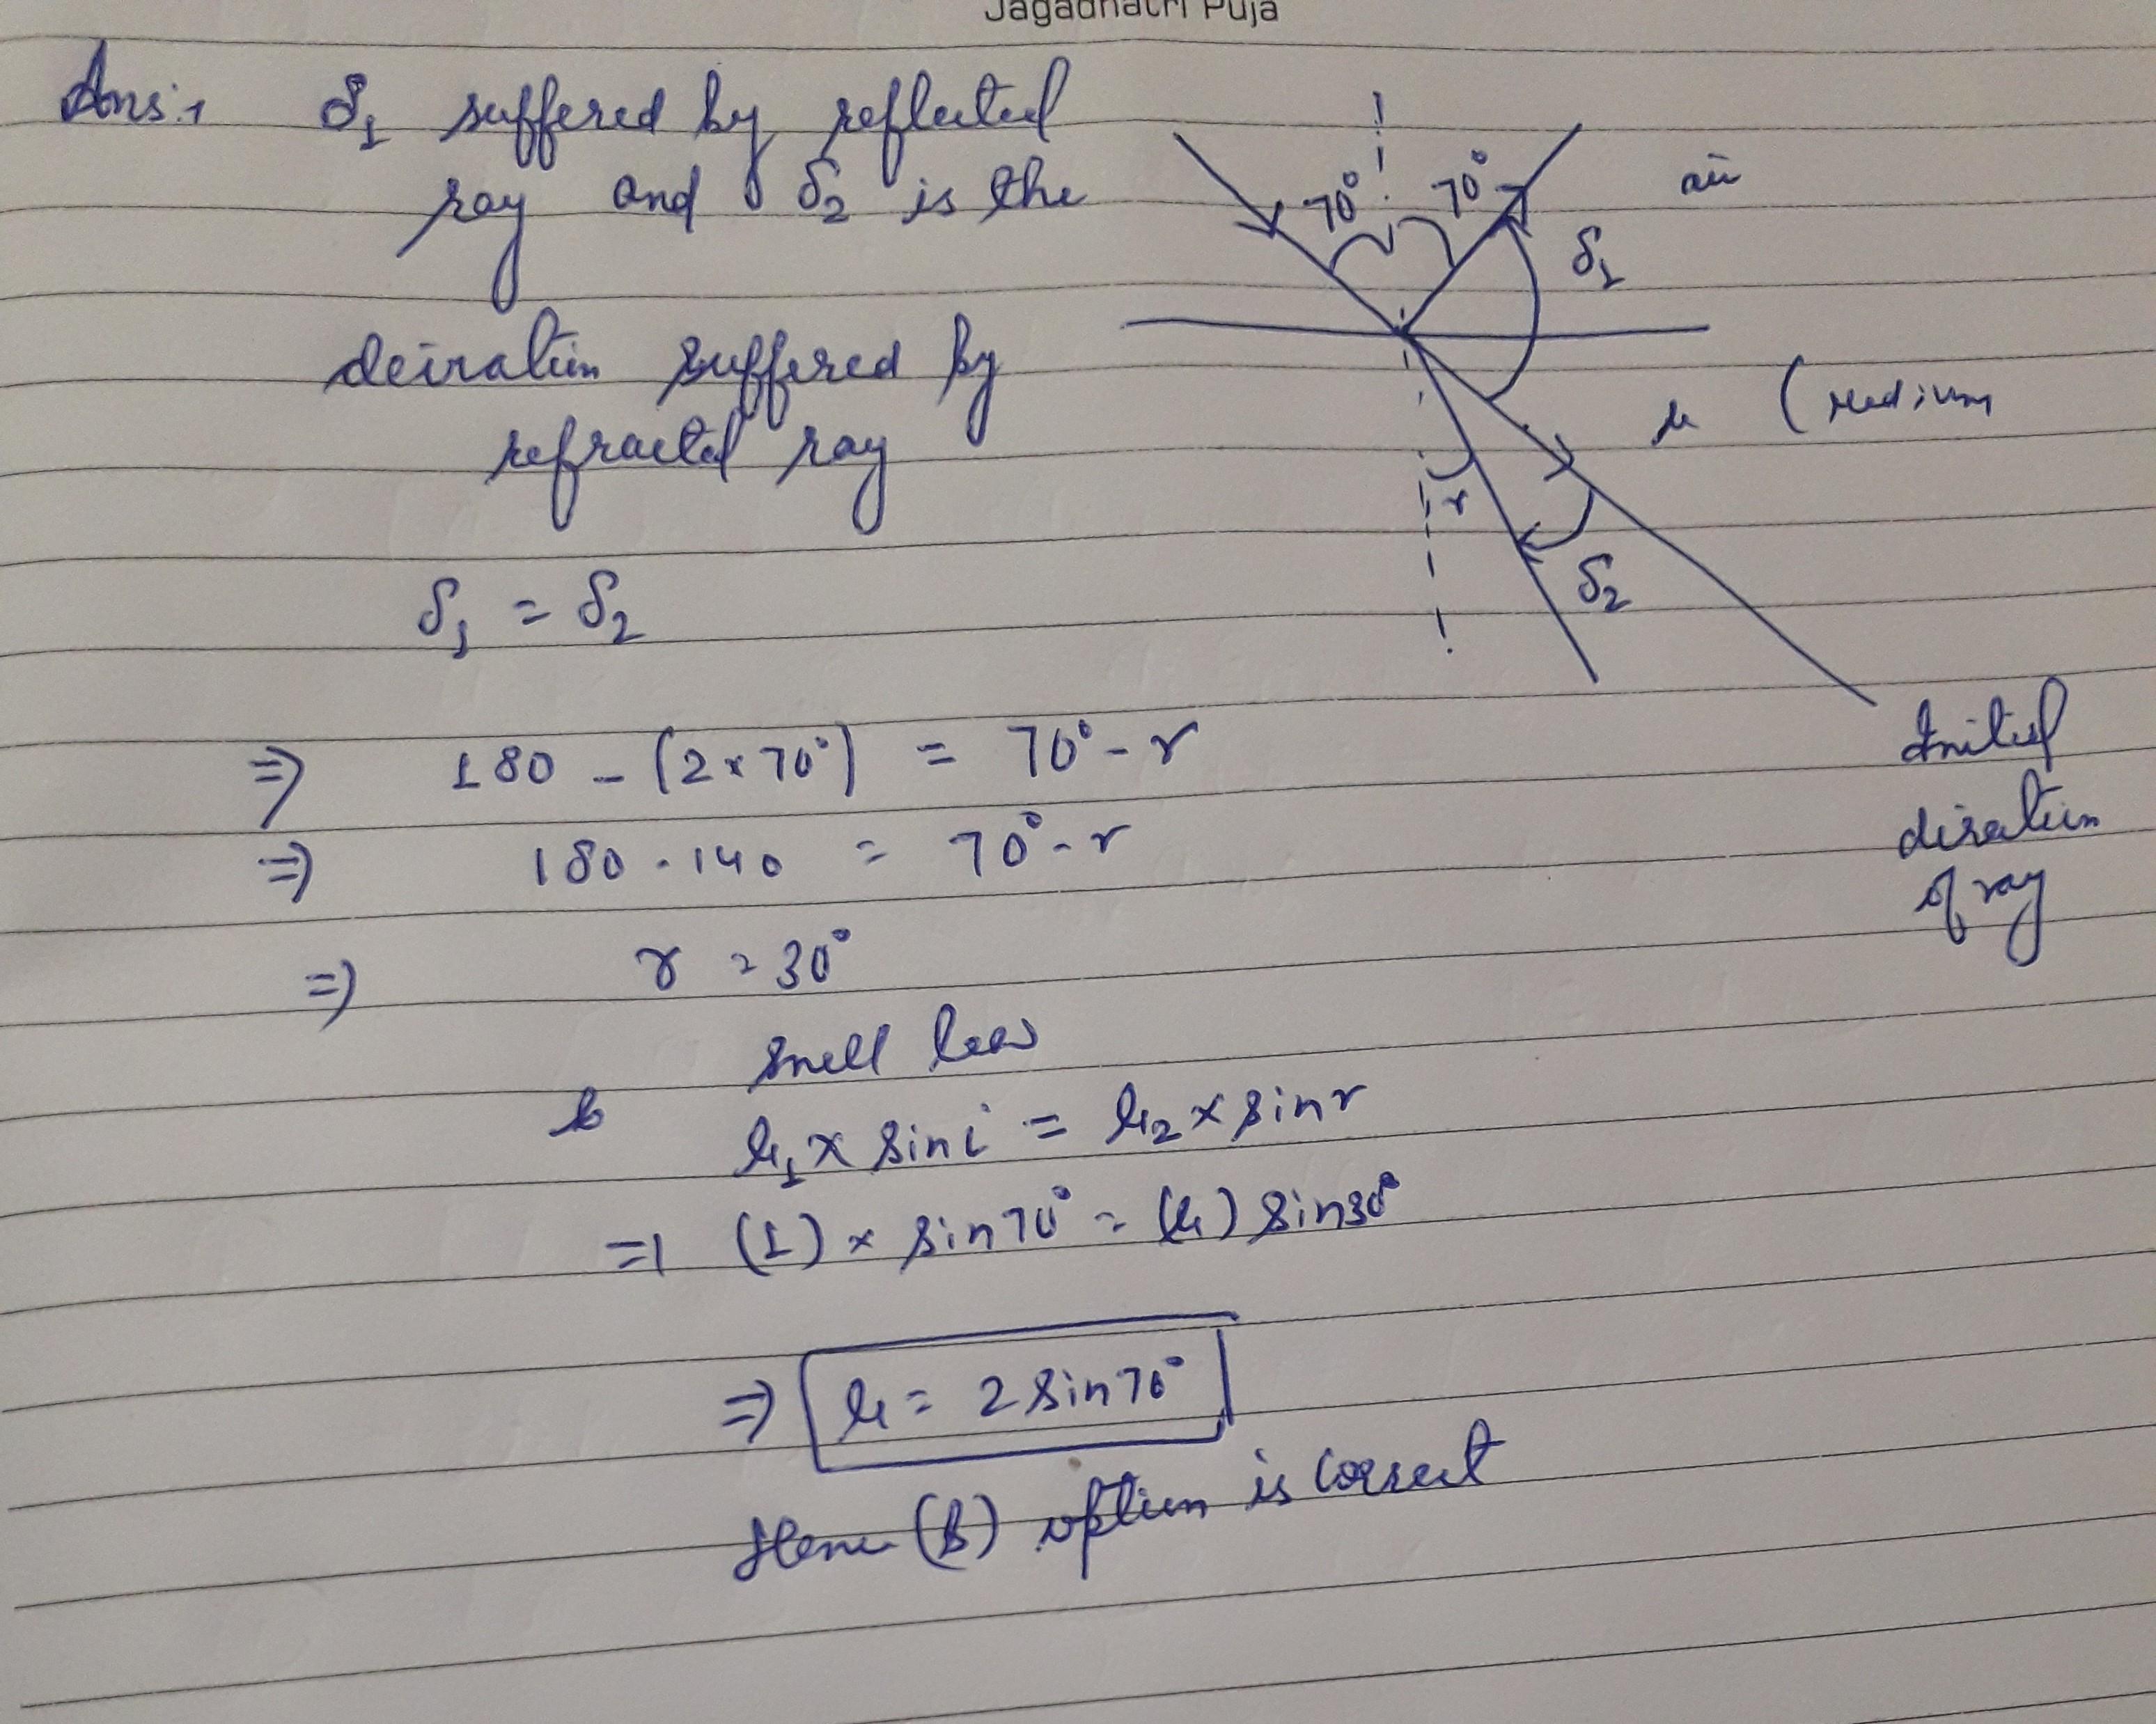 Jagadhatri Puja
Ans:→ δ₁ suffered by reflected
ray and δ₂ is the
deiration suffered by
refracted ray
70° 70° air
δ₁
μ (medium
r
δ₂
Initial
diration
of ray
δ₁ = δ₂
⇒ 180 - (2×70°) = 70° - r
⇒ 180 - 140 = 70° - r
⇒ r = 30°
Snell law
μ₁ × sin i = μ₂ × sin r
⇒ (1) × sin 70° = (μ) sin 30°
⇒ μ = 2 sin 70°
Hence (B) option is correct